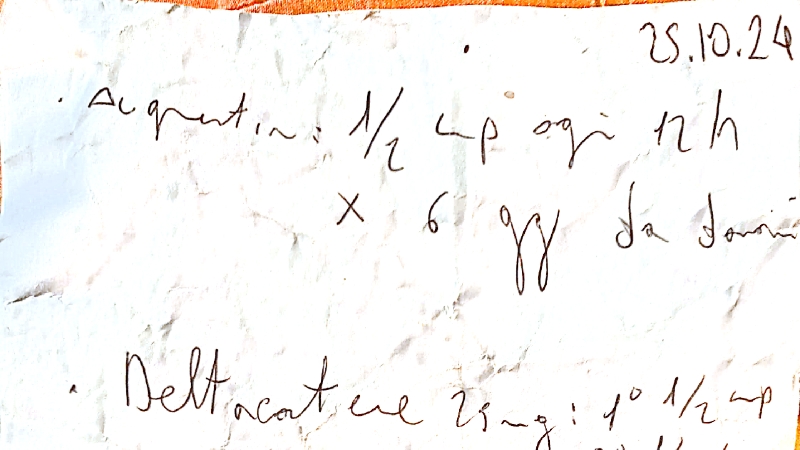 25.10.24
. Augmentin: 1/2 cp ogni 12 h
x 6 gg da domani
. Deltacortene 25 mg: 1° 1/2 cp